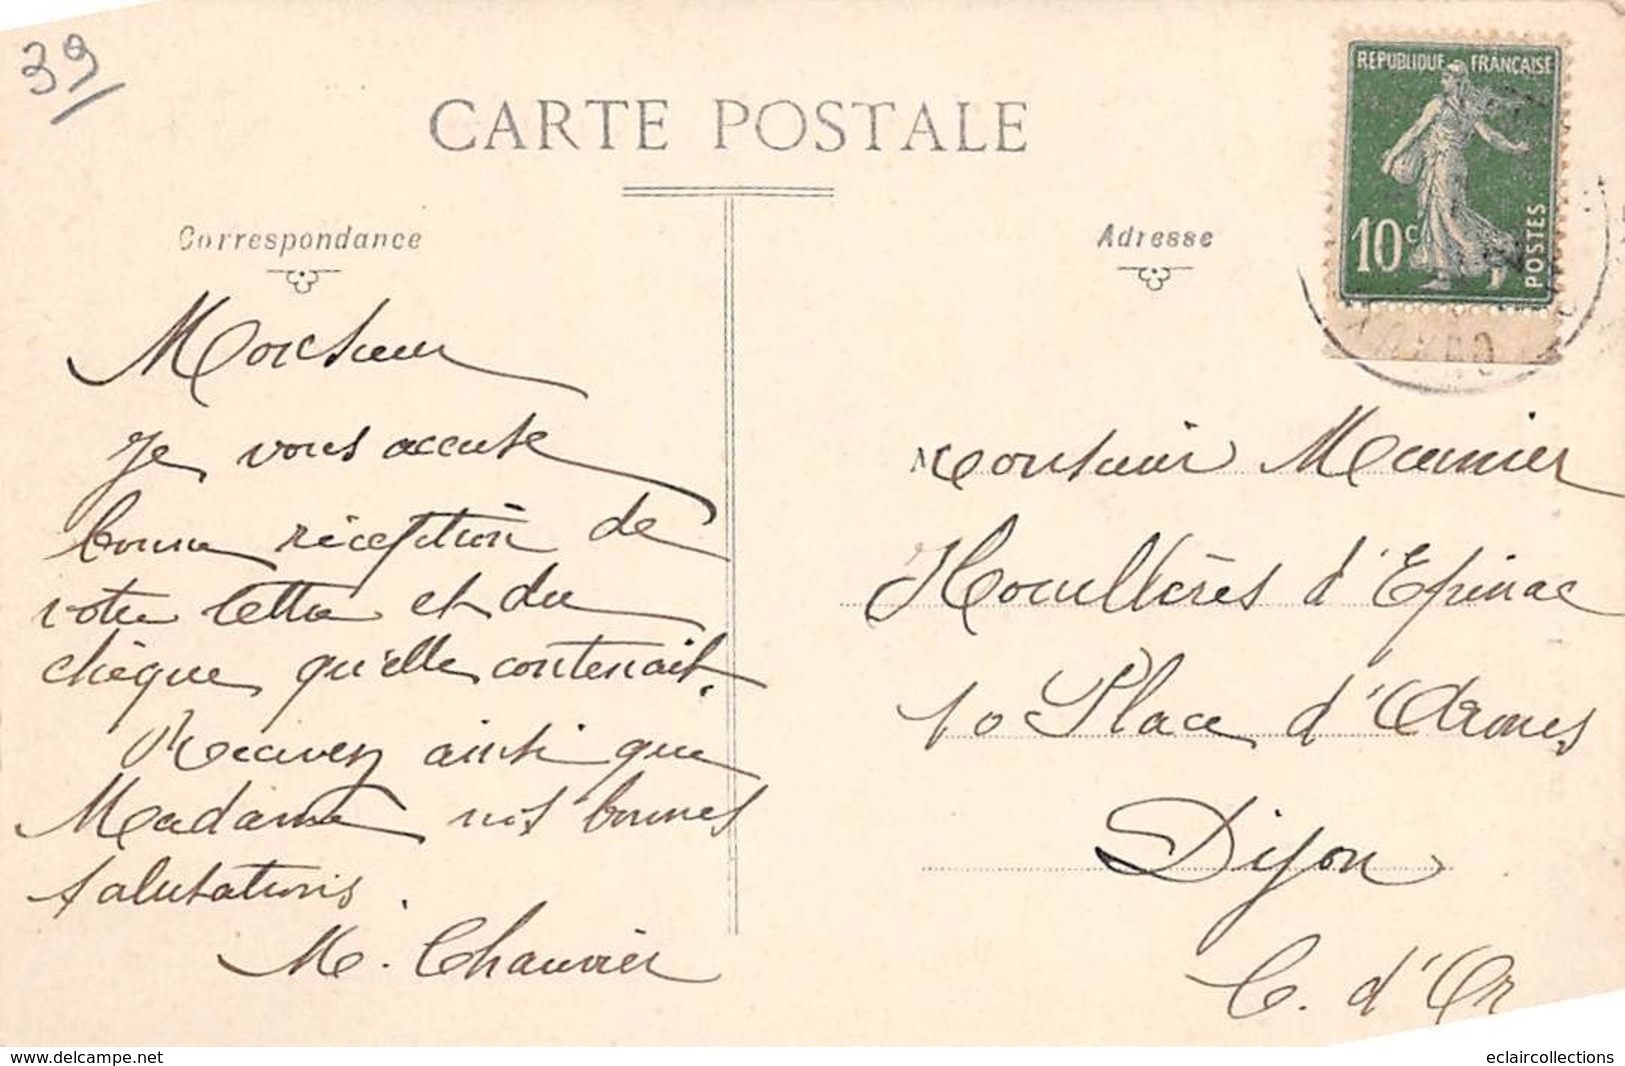 39
CARTE POSTALE
Correspondance
Adresse
REPUBLIQUE FRANÇAISE
10c
POSTES
Monsieur
Je vous accuse
bonne réception de
votre lettre et du
chèque qu'elle contenait.
Recevez ainsi que
Madame nos bonnes
salutations.
M. Chauvier
Monsieur Meunier
Houillères d'Epinac
10 Place d'Armes
Dijon
C. d'Or
www.delcampe.net
eclaircollections